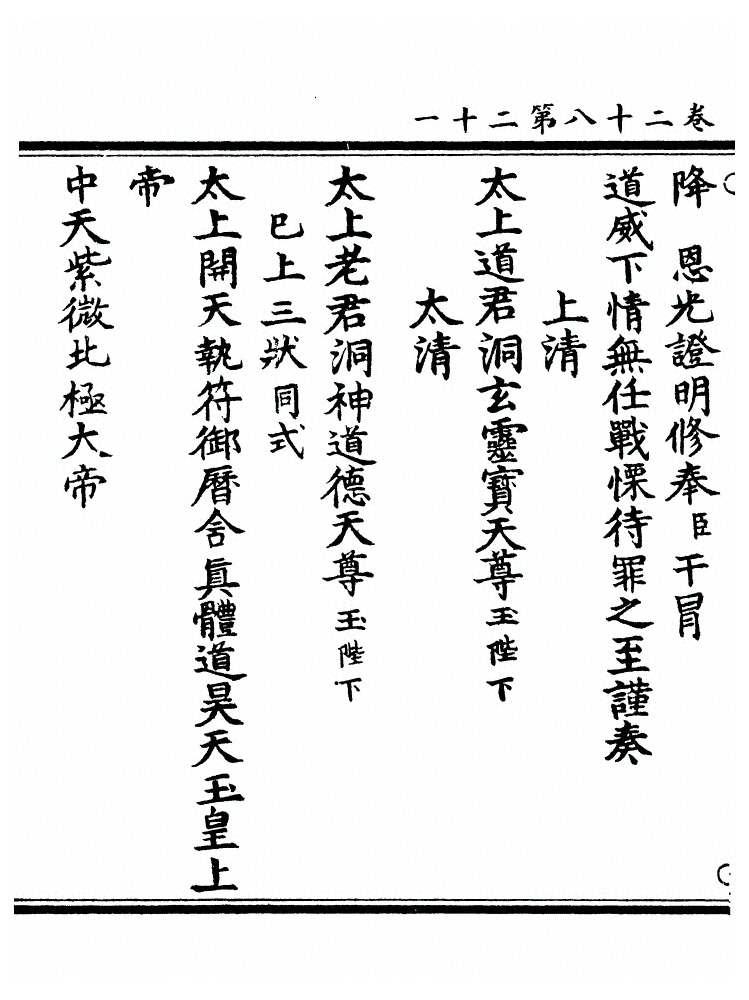 卷二十八第二十一
降　恩光證明修奉臣干冒
道威下情無任戰慄待罪之至謹奏
上清
太上道君洞玄靈寶天尊玉陛下
太清
太上老君洞神道德天尊玉陛下
巳上三狀同式
太上開天執符御曆含眞體道昊天玉皇上
帝
中天紫微北極大帝